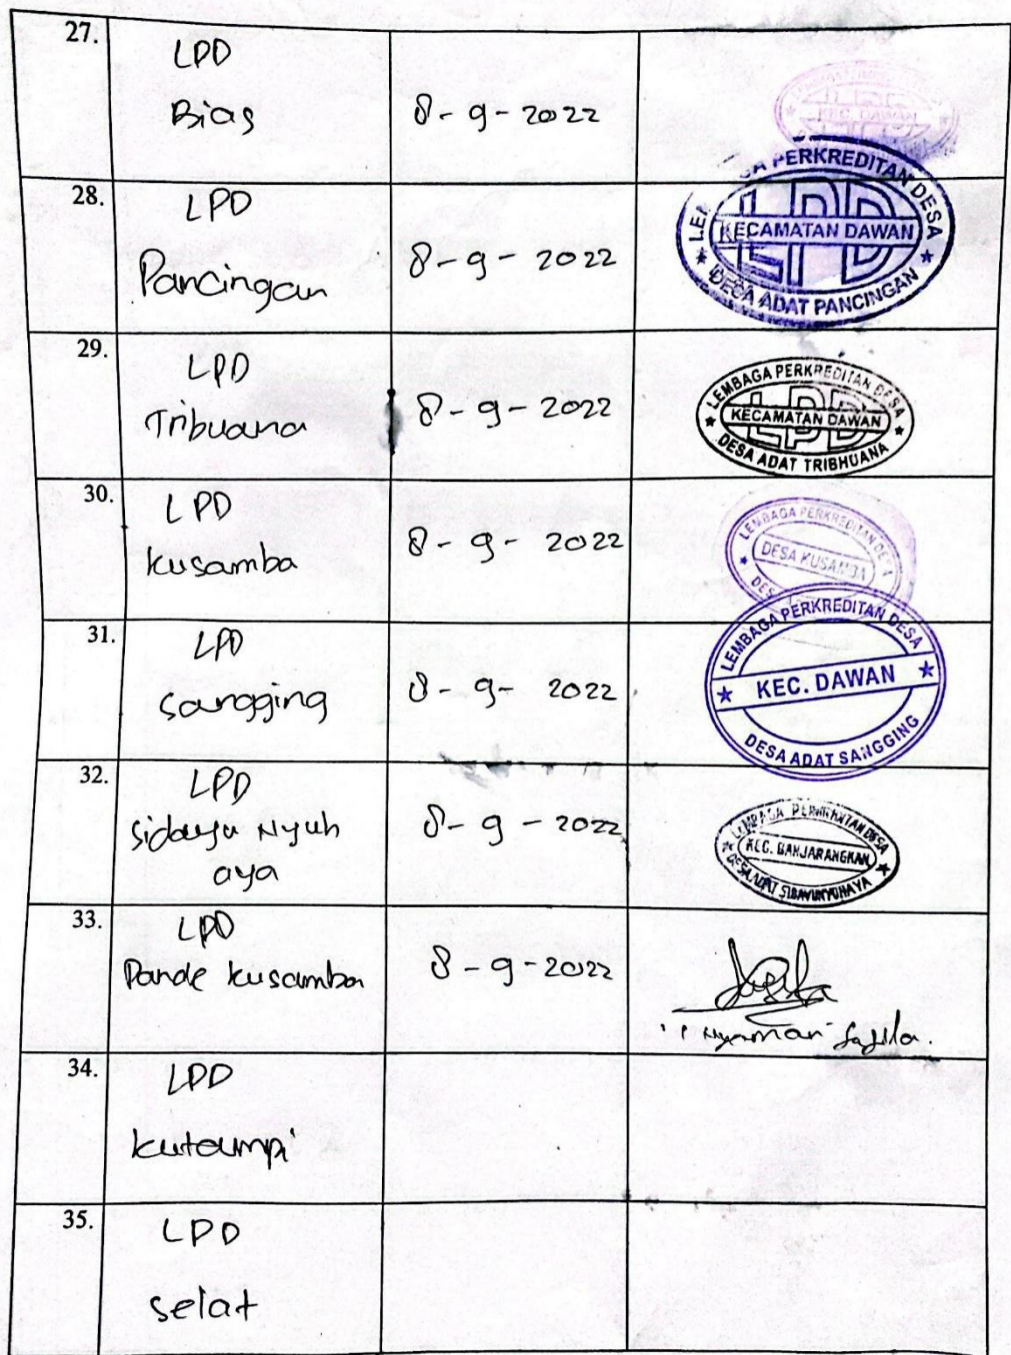 27.
LPD
Bias
8-9-2022
KEC. DAWAN
28.
LPD
Pancingan
8-9-2022
PERKREDITAN DESA
LPD
KECAMATAN DAWAN
DESA ADAT PANCINGAN
29.
LPD
Tribuana
8-9-2022
LEMBAGA PERKREDITAN DESA
LPD
KECAMATAN DAWAN
DESA ADAT TRIBHUANA
30.
LPD
kusamba
8-9-2022
LEMBAGA PERKREDITAN DESA
DESA KUSAMBA
31.
LPD
sangging
8-9-2022
LEMBAGA PERKREDITAN DESA
KEC. DAWAN
DESA ADAT SANGGING
32.
LPD
sidayu Nyuh
aya
8-9-2022
LEMBAGA PERKREDITAN DESA
KEC. BANJARANGKAN
DESA ADAT
33.
LPD
Pande kusamba
8-9-2022
Nyoman
34.
LPD
kutampi
35.
LPD
selat